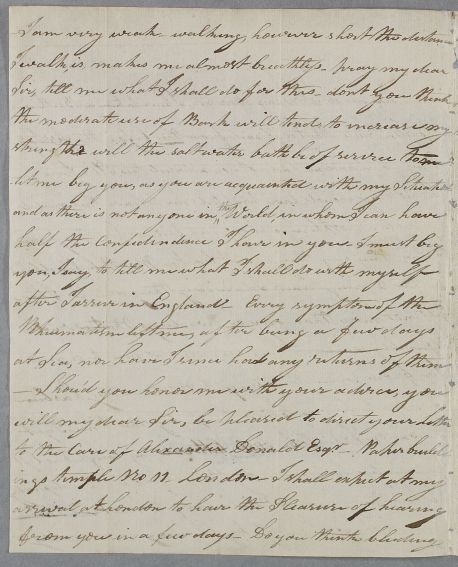 I am very weak - walking, however short the distance
I walk, is, makes me almost breathless - pray my dear
Sir, tell me what I shall do for this. dont you think
the moderate use of Bark will tend to increase my
strength will the saltwater bath be of service to me
let me beg you, as you are acquainted with my Situation
and as there is not anyone in the World, in whom I can have
half the Confidindence I have in you I must beg
you, I say, to tell me what I shall do with myself
after I arrive in England - Every symptom of the
Rheumatism left me, after being a few days
at Sea, nor have I since had any returns of them
- Should you honor me with your advice, you
will my dear Sir, be pleased to direct your letter
to the Care of Alexander Donald Esqr - Paper build-
ings temple No 11 London - I shall expect at my
arrival at London to have the Pleasure of hearing
from you in a few days - Do you think bleeding